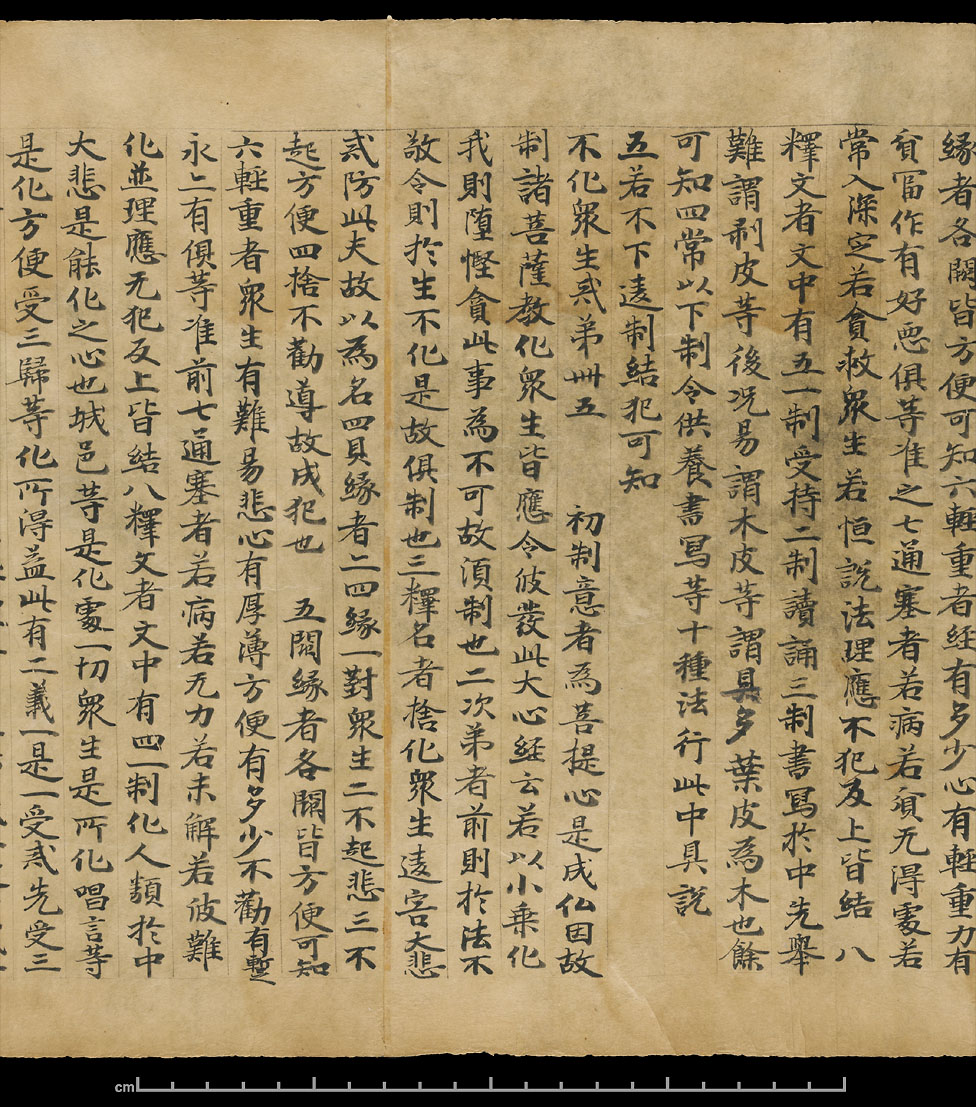 緣者各闕皆方便可知六輕重者經有多少心有輕重力有
貧冨作有好惡俱等准之七通塞者若病若貧无得處若
常入深定若貪救衆生若恒說法理應不犯及上皆結 八
釋文者文中有五一制受持二制讀誦三制書冩於中先舉
難謂剥皮等後况易謂木皮等謂具多葉皮為木也餘
可知四常以下制令供養書冩等十種法行此中具說
五若不下違制結犯可知
不化衆生貳弟卌五 初制意者為菩提心是成仏因故
制諸菩薩教化衆生皆應令彼發此大心經云若以小乗化
我則堕慳貪此事為不可故湏制也二次弟者前則於法不
敬令則於生不化是故俱制也三釋名者捨化衆生違害大悲
貳防此夫故以為名四具緣者二四緣一對衆生二不起悲三不
起方便四捨不勸導故成犯也 五闕緣者各闕皆方便可知
六輕重者衆生有難易悲心有厚薄方便有多少不勸有蹔
永二有俱等准前七通塞者若病若无力若未解若彼難
化並理應无犯反上皆結八釋文者文中有四一制化人類於中
大悲是能化之心也城邑等是化處一切衆生是所化唱言等
是化方便受三歸等化所得益此有二義一是一受貳先受三